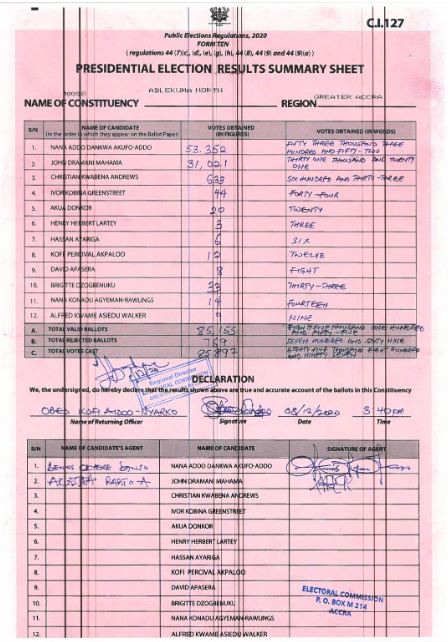 C.I.127
Public Elections Regulations, 2020
FORM TEN
( regulations 44 (7)(c), (d), (e), (g), (h), 44 (8), 44 (9) and 44 (9)(a))
PRESIDENTIAL ELECTION RESULTS SUMMARY SHEET
ABLEKUMA NORTH
GREATER ACCRA
NAME OF CONSTITUENCY REGION
S/N NAME OF CANDIDATE (In the order in which they appear on the Ballot Paper) VOTES OBTAINED (IN FIGURES) VOTES OBTAINED (IN WORDS)
1. NANA ADDO DANKWA AKUFO-ADDO 53,352 FIFTY THREE THOUSAND THREE HUNDRED AND FIFTY-TWO
2. JOHN DRAMANI MAHAMA 31,021 THIRTY ONE THOUSAND AND TWENTY ONE
3. CHRISTIAN KWABENA ANDREWS 633 SIX HUNDRED AND THIRTY-THREE
4. IVOR KOBINA GREENSTREET 44 FORTY-FOUR
5. AKUA DONKOR 20 TWENTY
6. HENRY HERBERT LARTEY 3 THREE
7. HASSAN AYARIGA 6 SIX
8. KOFI PERCIVAL AKPALOO 12 TWELVE
9. DAVID APASERA 8 EIGHT
10. BRIGITTE DZOGBENUKU 33 THIRTY-THREE
11. NANA KONADU AGYEMAN-RAWLINGS 14 FOURTEEN
12. ALFRED KWAME ASIEDU WALKER 9 NINE
A. TOTAL VALID BALLOTS 85,155 EIGHTY FIVE THOUSAND ONE HUNDRED AND FIFTY-FIVE
B. TOTAL REJECTED BALLOTS 769 SEVEN HUNDRED AND SIXTY NINE
C. TOTAL VOTES CAST EIGHTY FIVE THOUSAND HUNDRED AND NINETY SEVEN
Regional Director
DECLARATION
We, the undersigned, do hereby declare that the results shown above are true and accurate account of the ballots in this Constituency
OBED KOFI 08/12/2020 3:40PM
Name of Returning Officer Signature Date Time
S/N NAME OF CANDIDATE'S AGENT NAME OF CANDIDATE SIGNATURE OF AGENT
1. NANA ADDO DANKWA AKUFO-ADDO
2. JOHN DRAMANI MAHAMA
3. CHRISTIAN KWABENA ANDREWS
4. IVOR KOBINA GREENSTREET
5. AKUA DONKOR
6. HENRY HERBERT LARTEY
7. HASSAN AYARIGA
8. KOFI PERCIVAL AKPALOO
9. DAVID APASERA
10. BRIGITTE DZOGBENUKU
11. NANA KONADU AGYEMAN-RAWLINGS
12. ALFRED KWAME ASIEDU WALKER
ELECTORAL COMMISSION
P. O. BOX M 214
ACCRA